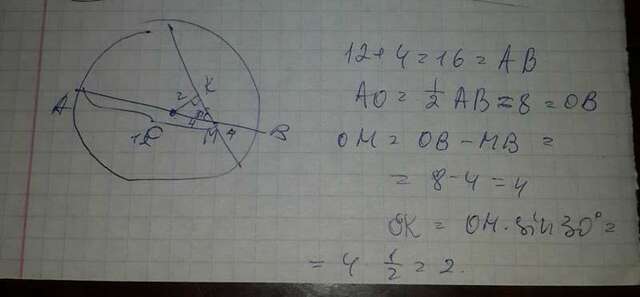 A
B
K
M
2
4
4
30°
12
12 + 4 = 16 = AB
AO = 1/2 AB = 8 = OB
OM = OB - MB =
= 8 - 4 = 4
OK = OM · sin 30° =
= 4 · 1/2 = 2.